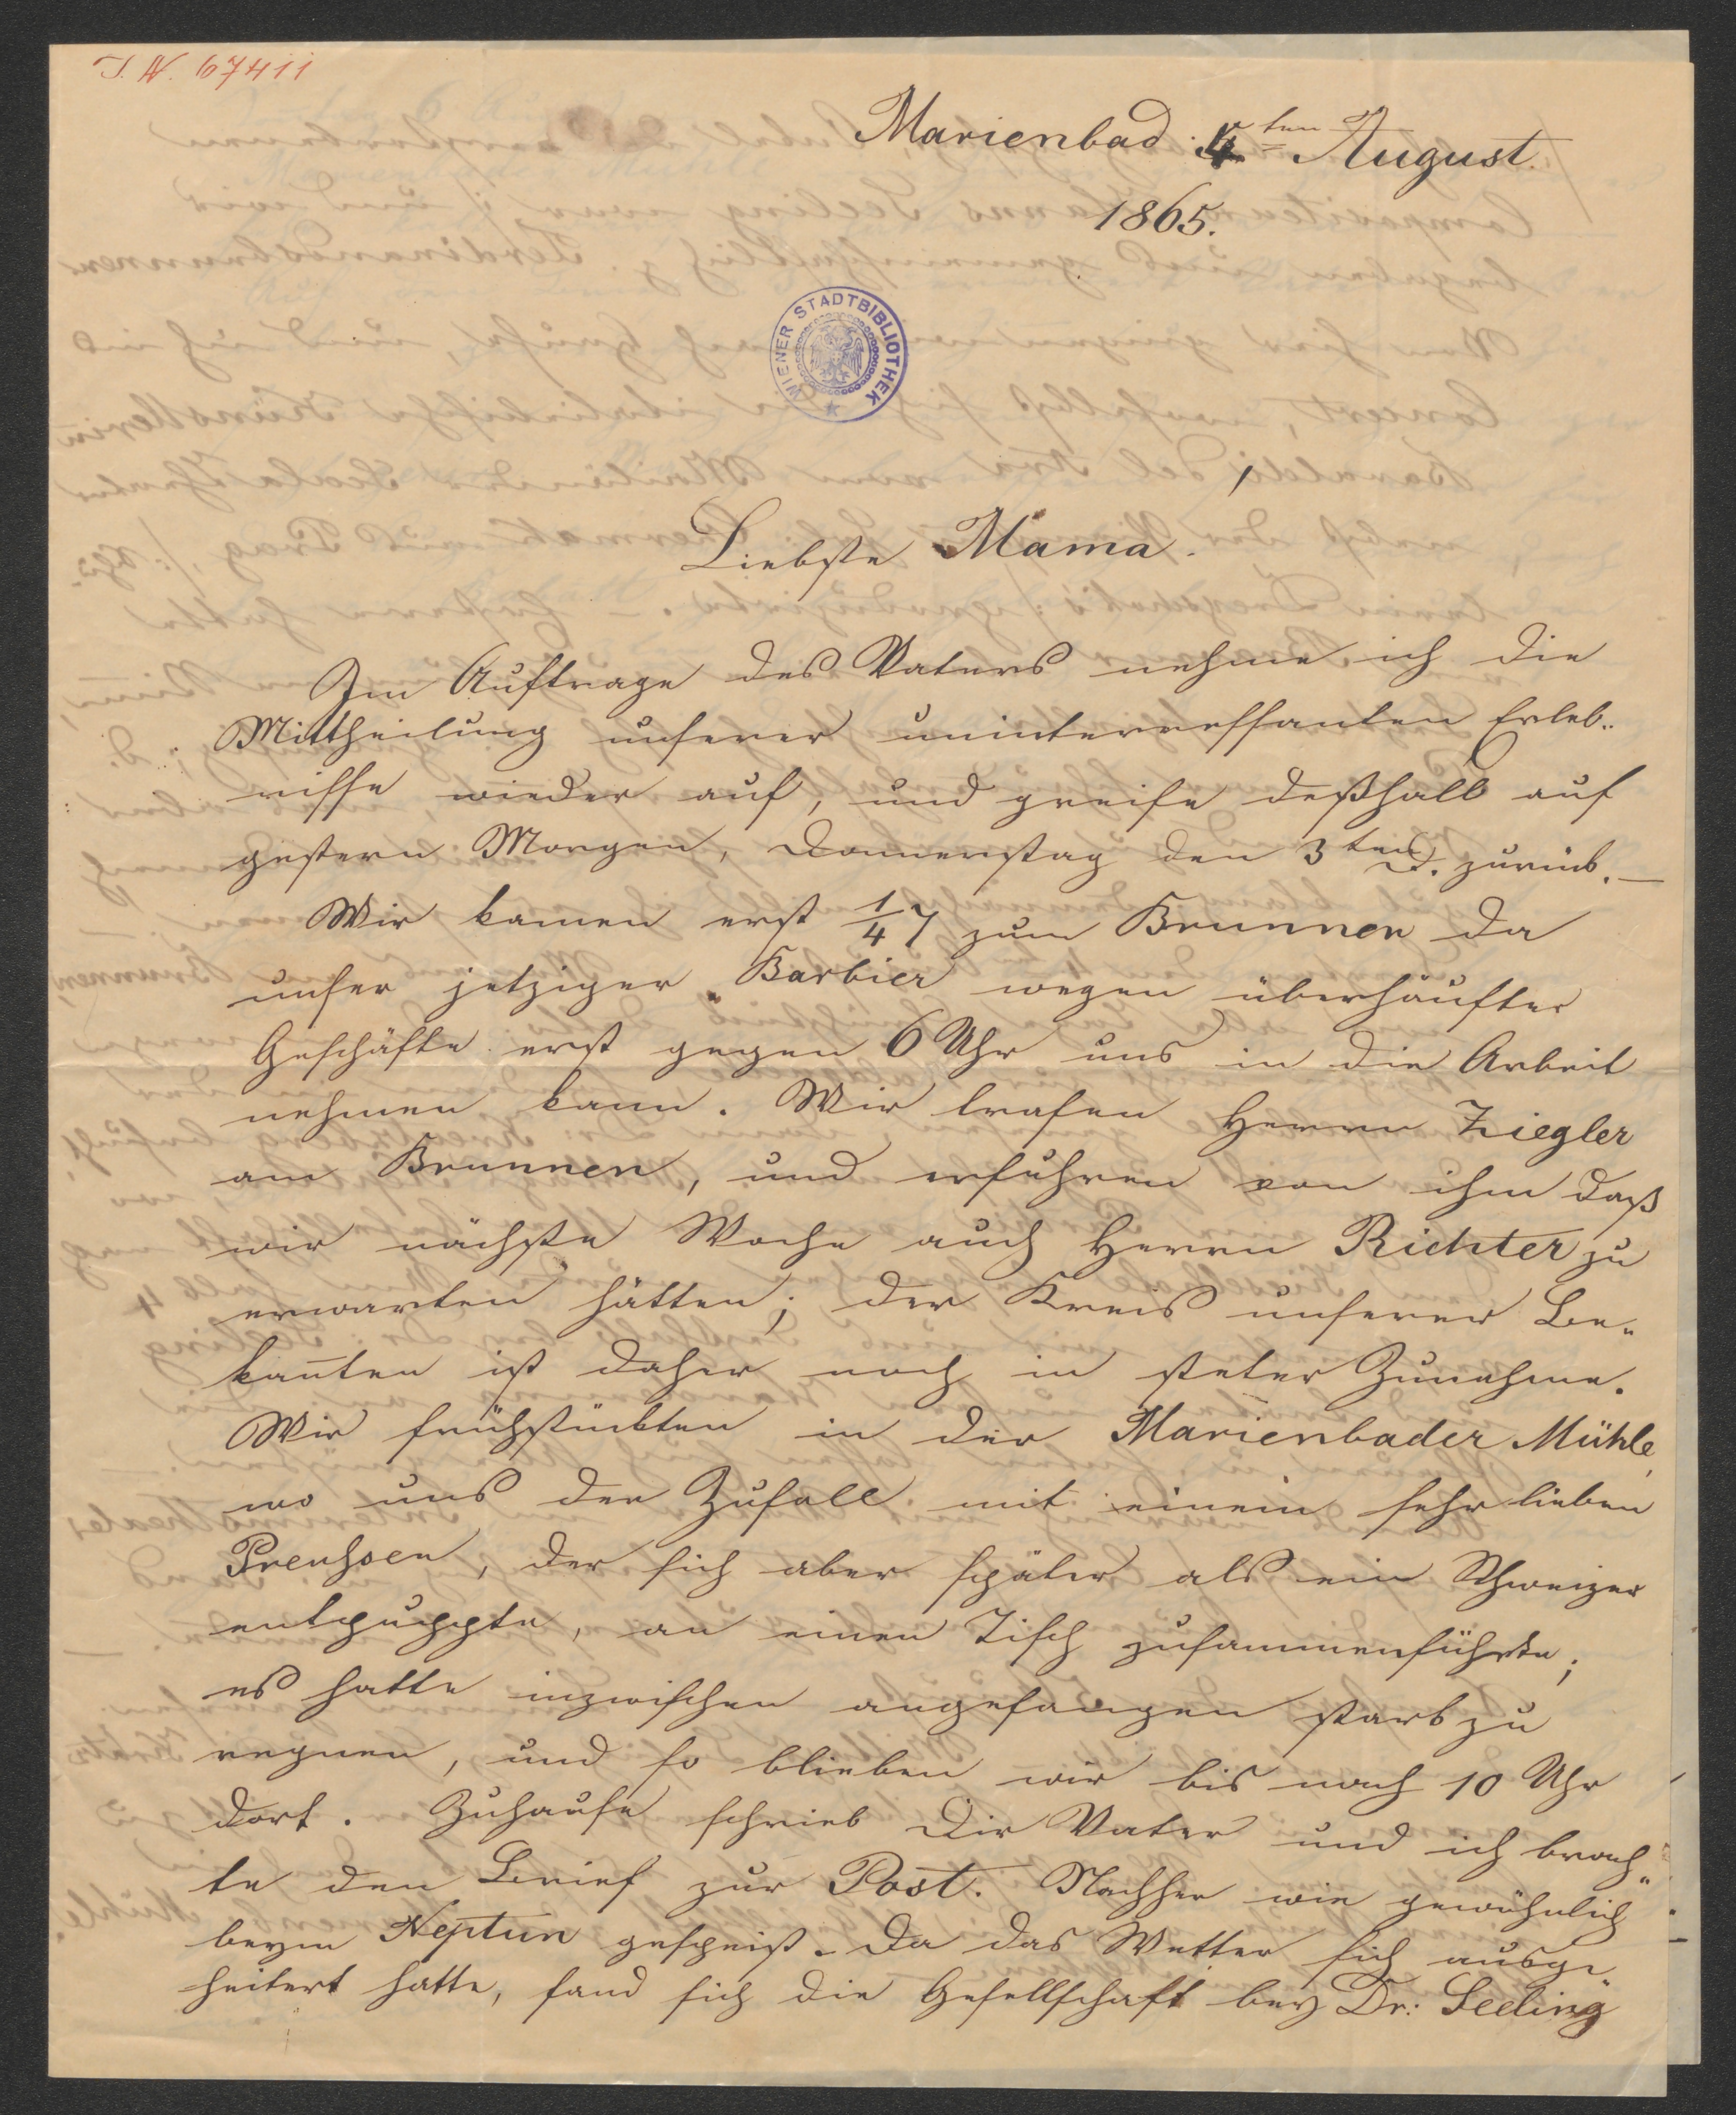 J. N. 67411
Marienbad 4ten August
1865.
WIENER STADTBIBLIOTHEK
Liebste Mama.
Im Auftrage des Vaters nehme ich die
Mittheilung unserer uninteressanten Erleb-
nisse wieder auf, und greife deßhalb auf
gestern Morgen, Donnerstag den 3ten d. zurück. —
Wir kamen erst 1/4 7 zum Brunnen da
unser jetziger Barbier wegen überhäufter
Geschäfte erst gegen 6 Uhr uns in die Arbeit
nehmen kann. Wir trafen Herrn Ziegler
am Brunnen, und erfuhren von ihm daß
wir nächste Woche auch Herrn Richter zu
erwarten hätten; der Kreis unserer Be-
kan̄ten ist daher noch in steter Zunahme.
Wir frühstückten in der Marienbader Mühle,
wo uns der Zufall mit einem sehr lieben
Preußen, der sich aber später als ein Schweizer
entpuppte, an einen Tisch zusammenführte;
es hatte inzwischen angefangen stark zu
regnen, und so blieben wir bis nach 10 Uhr
dort. Zuhause schrieb Dir Vater und ich brach-
te den Brief zur Post. Nachher wie gewöhnlich
beym Neptun gespeist. Da das Wetter sich ausge-
heitert hatte, fand sich die Gesellschaft bey Dr: Seeling